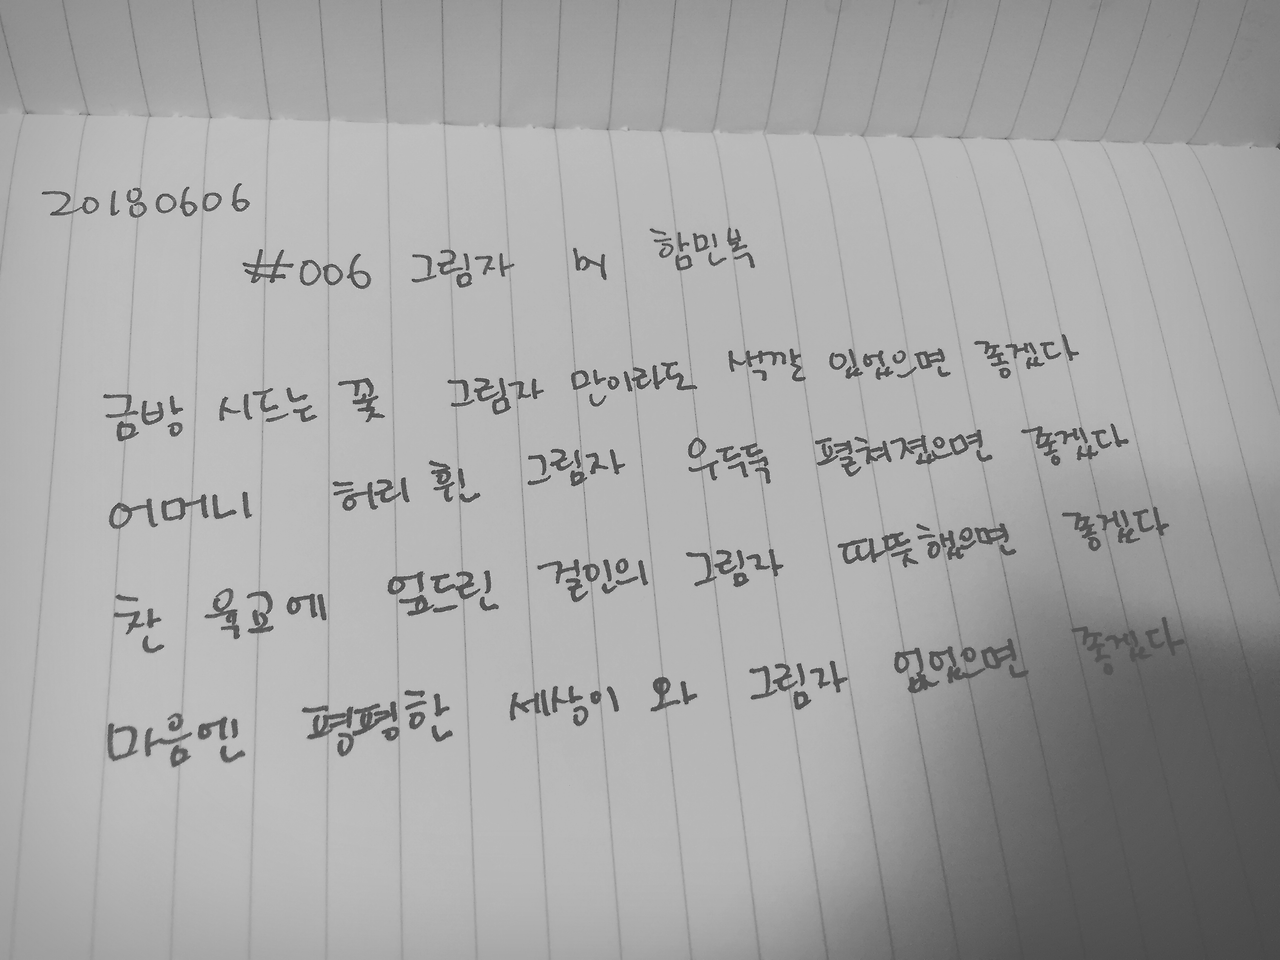 20180606
#006 그림자 by 함민복
금방 시드는 꽃 그림자 만이라도 색깔 있었으면 좋겠다
어머니 허리 휜 그림자 우두둑 펼쳐졌으면 좋겠다
찬 육교에 엎드린 걸인의 그림자 따뜻했으면 좋겠다
마음엔 평평한 세상이 와 그림자 없었으면 좋겠다